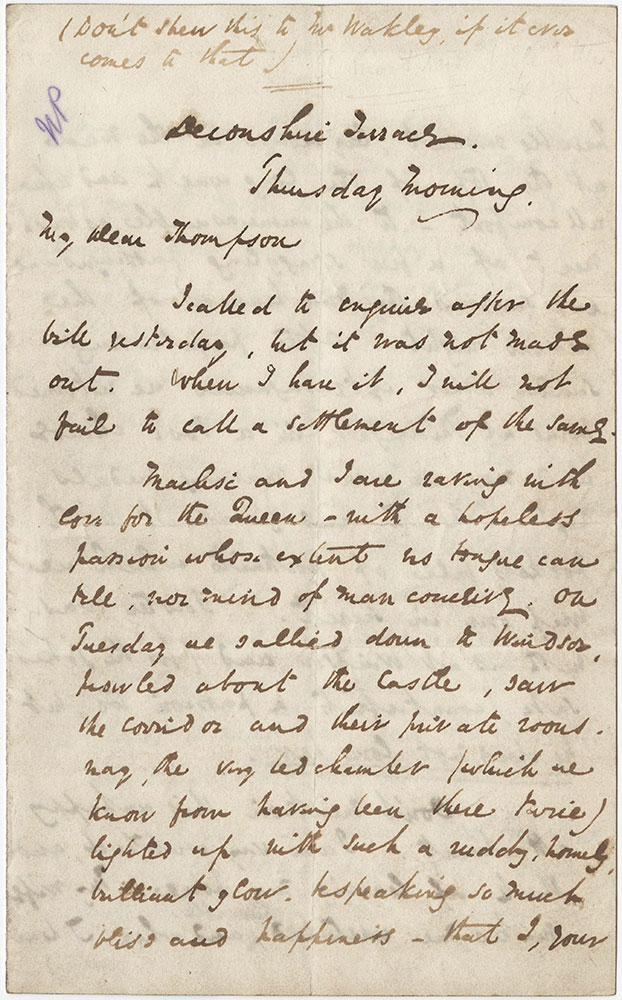 (Don't shew this to Mr Wakley, if it ever
comes to that.)
Devonshire Terrace.
Thursday Morning.
My Dear Thompson
I called to enquire after the
bill yesterday, but it was not made
out. When I have it, I will not
fail to call a settlement of the same.
Maclise and I are raving with
love for the Queen - with a hopeless
passion whose extent no tongue can
tell, nor mind of man conceive. On
Tuesday we sallied down to Windsor,
prowled about the Castle, saw
the corridor and their private rooms -
nay, the very bedchamber (which we
know from having been there twice)
lighted up with such a ruddy, homely,
brilliant glow - bespeaking so much
bliss and happiness - that I, your